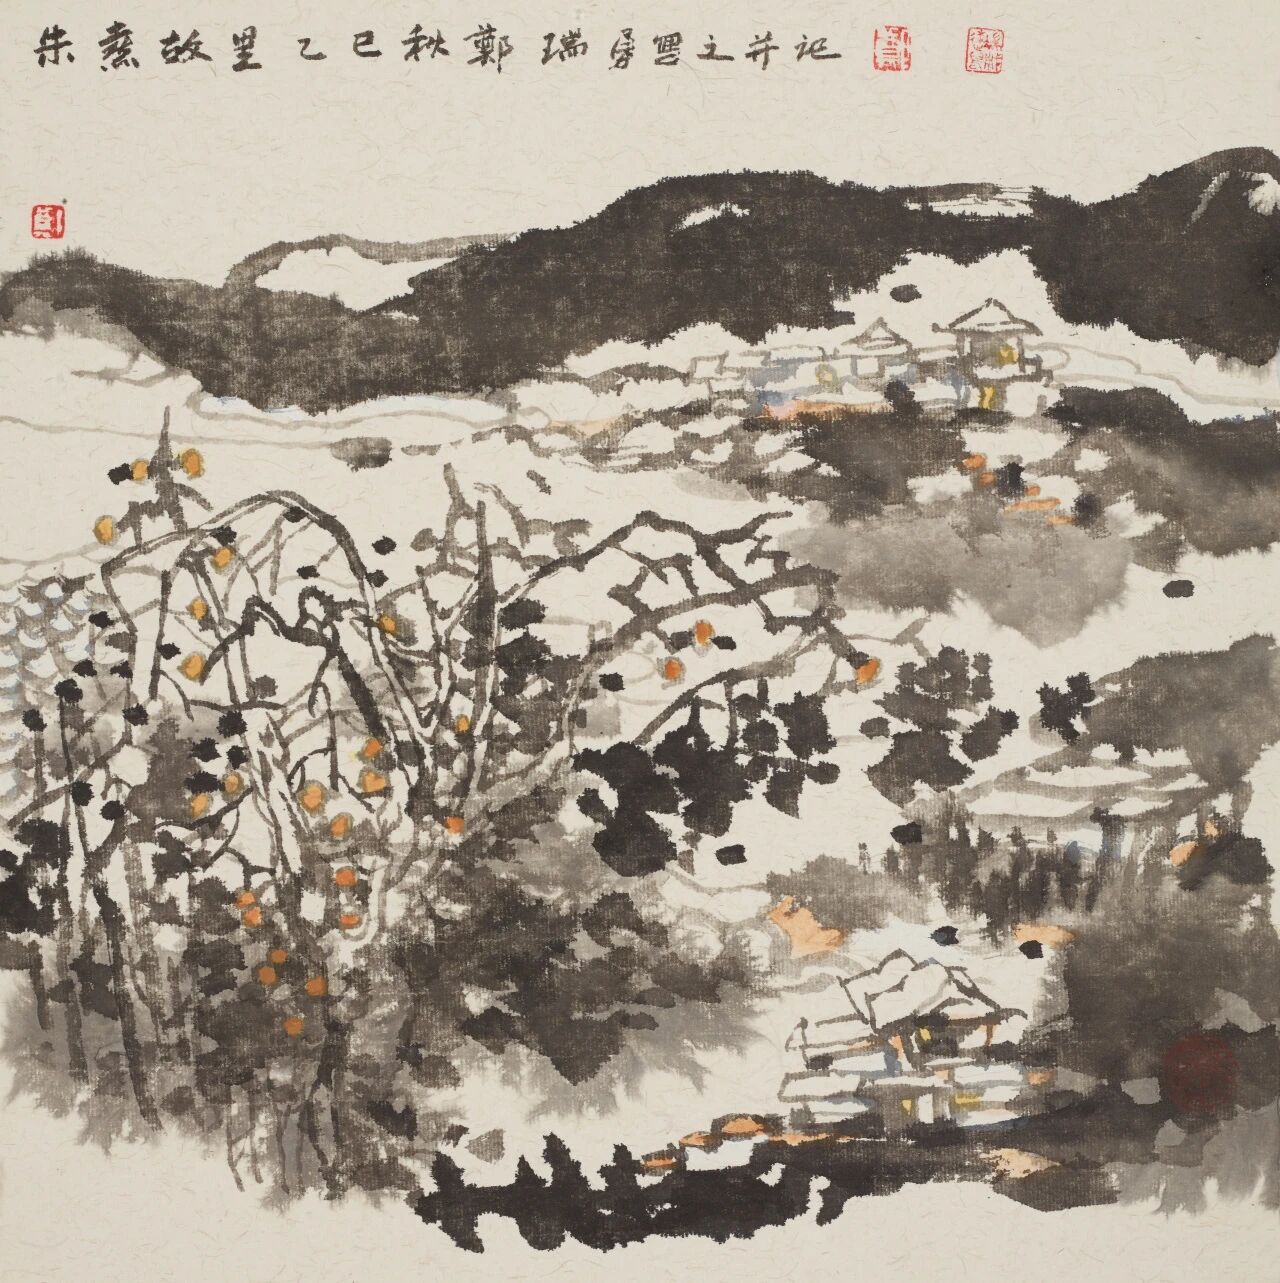 朱熹故里乙巳秋鄭瑞勇寫之并记